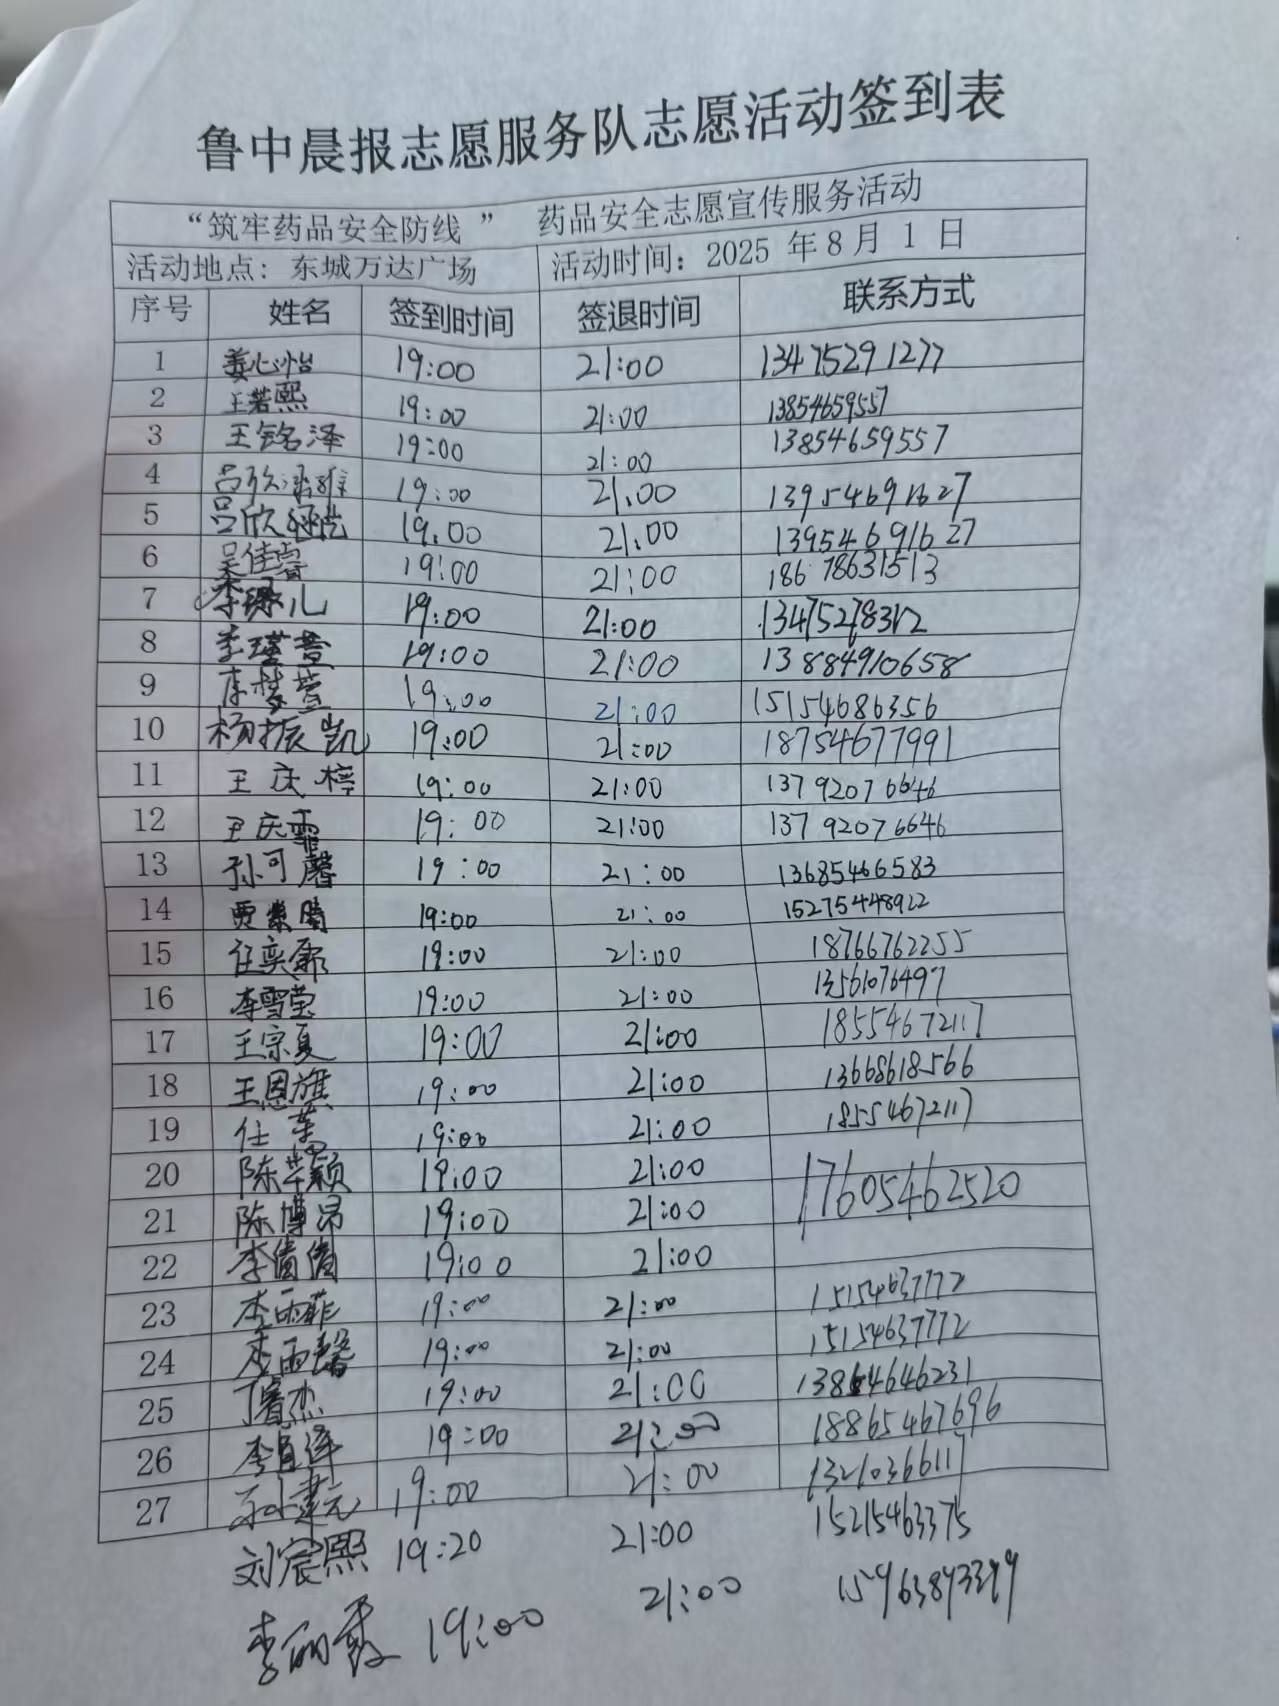 鲁中晨报志愿服务队志愿活动签到表
“筑牢药品安全防线 ” 药品安全志愿宣传服务活动
活动地点：东城万达广场 活动时间：2025 年 8 月 1 日
序号 姓名 签到时间 签退时间 联系方式
1 姜心怡 19:00 21:00 13475291277
2 王若熙 19:00 21:00 13854659557
3 王铭泽 19:00 21:00 13854659557
4 吕欣 19:00 21:00 13954691627
5 吕欣 19:00 21:00 13954691627
6 吴佳睿 19:00 21:00 18678631513
7 李琭儿 19:00 21:00 13475278312
8 李瑾萱 19:00 21:00 13884910658
9 李梦萱 19:00 21:00 15154686356
10 杨振凯 19:00 21:00 18754677991
11 王庆梓 19:00 21:00 13792076646
12 王庆霏 19:00 21:00 13792076646
13 孙可馨 19:00 21:00 13685466583
14 贾紫晴 19:00 21:00 15275448922
15 任奕霏 19:00 21:00 18766762255
16 李雪莹 19:00 21:00 13561076497
17 王宗夏 19:00 21:00 18554672117
18 王恩旗 19:00 21:00 13668618566
19 任 19:00 21:00 18554672117
20 陈颖 19:00 21:00 17605462520
21 陈博昂 19:00 21:00
22 李倩倩 19:00 21:00
23 李雨菲 19:00 21:00 15154637772
24 李雨馨 19:00 21:00 15154637772
25 丁睿杰 19:00 21:00 13864646231
26 李 19:00 21:00 18865467696
27 19:00 21:00 13210366117
刘宸熙 19:20 21:00 15215463375
李丽霞 19:00 21:00 15963893399